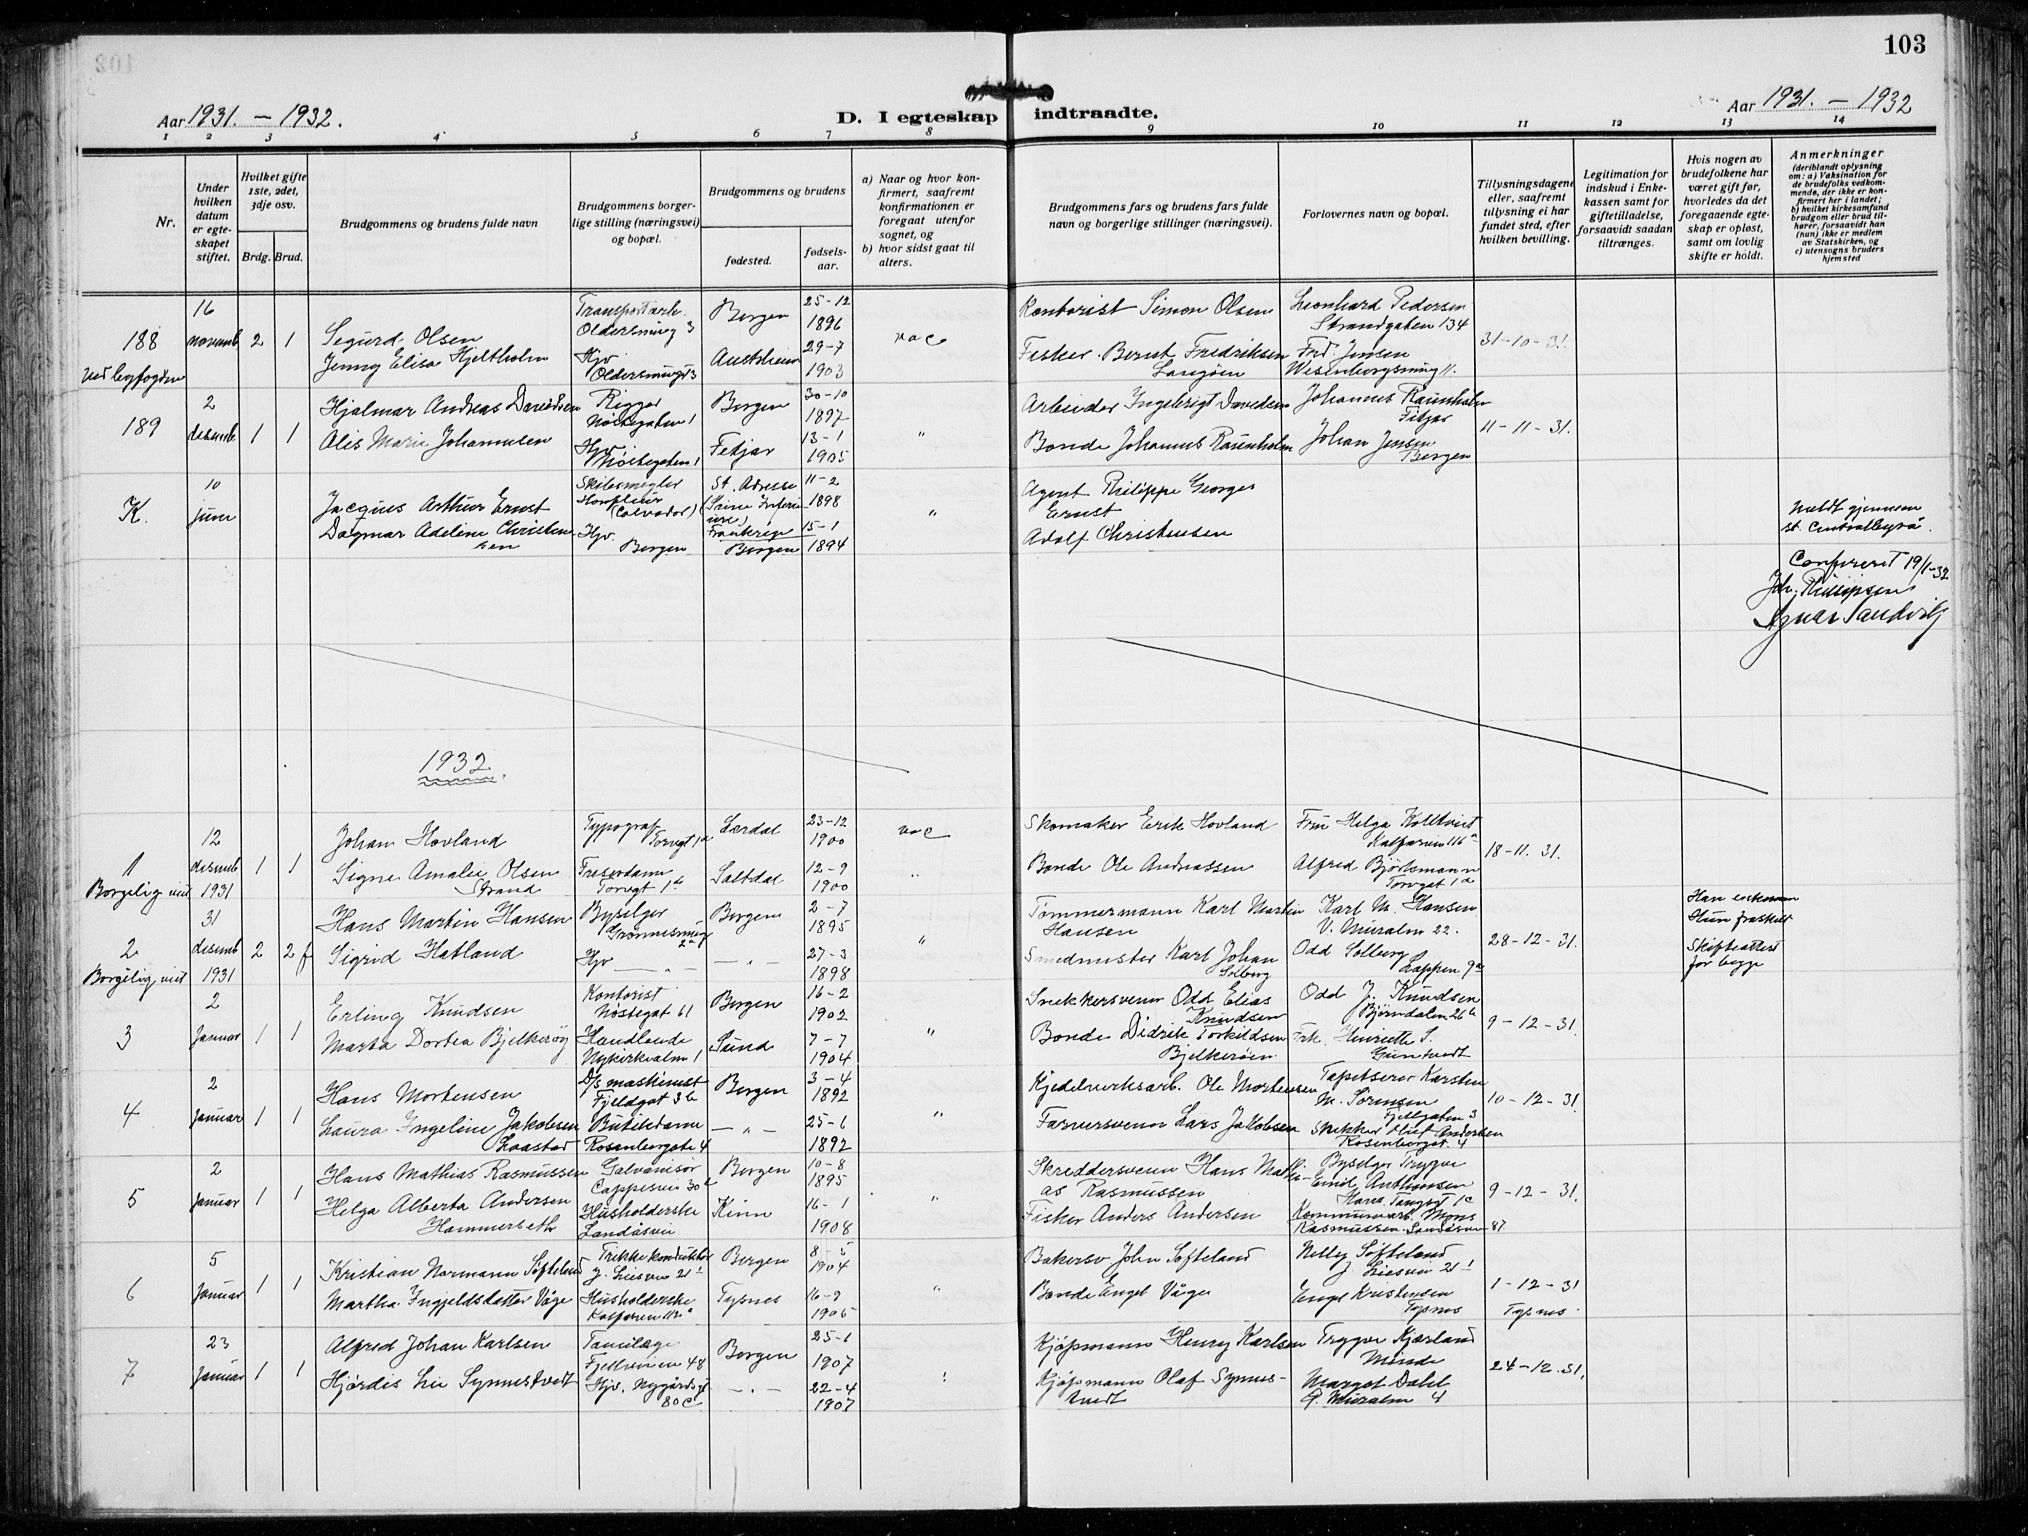 103
Aar 1931. – 1932.
D. I egteskap indtraadte.
Aar 1931. – 1932
1 2 3 4 5 6 7 8 9 10 11 12 13 14
Nr.
Under hvilken datum er egteskapet stiftet.
Hvilket gifte 1ste, 2det, 3dje osv.
Brdg. Brud.
Brudgommens og brudens fulde navn
Brudgommens borgerlige stilling (næringsvei) og bopæl.
Brudgommens og brudens
fødested.
fødselsaar.
a) Naar og hvor konfirmert, saafremt konfirmationen er foregaat utenfor sognet, og
b) hvor sidst gaat til alters.
Brudgommens fars og brudens fars fulde navn og borgerlige stillinger (næringsvei).
Forlovernes navn og bopæl.
Tillysningsdagene eller, saafremt tillysning ei har fundet sted, efter hvilken bevilling.
Legitimation for indskud i Enkekassen samt for giftetilladelse, forsaavidt saadan tiltrænges.
Hvis nogen av brudefolkene har været gift før, hvorledes da det foregaaende egteskap er opløst, samt om lovlig skifte er holdt.
Anmerkninger
(deriblandt oplysning om: a) Vaksination for de brudefolks vedkommende, der ikke er konfirmert her i landet; b) hvilket kirkesamfund brudgom eller brud tilhører, forsaavidt han (hun) ikke er medlem av Statskirken, og c) utensogns bruders hjemsted
188 16 novemb 2 1
Sigurd Olsen Transportarb. Oldersmug 3 Bergen 25-12 1896 vac
Kontorist Simon Olsen Leonhard Pedersen Strandgaten 134 31-10-31.
Jenny Elisa Hjeltholm Hjv Oldersmugt 3 Austrheim 29-7 1903
Fisker Bernt Fredriksen Frd. Jensen Wesenbergsmug 11.
ved byfogden
189 2 desemb 1 1
Hjalmar Andreas Davidsen Rigger Nöstegaten 1 Bergen 30-10 1897 "
Arbeider Ingebrigt Davidsen Johannes Raunholm Fitjar 11-11-31.
Alis Marie Johannesen Hjv. Nöstegaten 1 Fitjar 13-1 1905
Bonde Johannes Raunholm Johan Jensen Bergen
K. 10 juni
Jacques Arthur Ernst Skibsmegler Honfleur (Calvados) St. Adresse (Seine Inferieure) Frankrige 11-2 1898 "
Agent Philippe Georges Ernst
Dagmar Adeline Christensen Hjv. Bergen Bergen 15-1 1894
Adolf Christensen
Meldt gjennem St. Centralbyrå.
Confereret 19/1-32
Joh. Phillipsen
Sandvig
1932.
1 12 desemb 1931 1 1
Borgelig viet
Johan Hovland Typograf Torvgt 1a Lærdal 23-12 1900 vac
Skomaker Erik Hovland Fru Helga Kalfarvei 116a 18-11.31.
Signe Amalie Olsen Strand Torvgt 1a Saltdal 12-9 1900 "
Bonde Ole Andreassen Alfred Björkmann Torvgat 1a
2 31 desemb 1931 2 2 f
Borgelig viet
Hans Martin Hansen Byselger Grönnesmug 2a Bergen 2-7 1895 "
Tömmermann Karl Martin Hansen Karl M. Hansen V. Muralm 22. 28-12-31.
Sigrid Hatland Hjv — " — — " — 27-3 1898
Smedmester Karl Johan Solberg Odd Solberg Lappen 9a
Han enkemann Hun fraskilt Skifteattest for begge
3 2 Januar 1 1
Erling Knudsen Kontorist Nöstegat 61 Bergen 16-2 1902 "
Snekkersvenn Odd Elias Knudsen Odd J. Knudsen Björndalen 26b 9-12-31.
Marta Dortea Bjelkeröy Handlende Nykirkealm 1 Sund 7-7 1904
Bonde Didrik Torkildsen Bjelkeröen Frk. Henriette S.
4 2 Januar 1 1
Hans Mortensen D/s maskinist Fjeldgat 3b Bergen 3-4 1892 "
Kjedelverksarb. Ole Mortensen Tapetserer Karsten M. Sörensen Fjellgaten 3 10-12-31.
Laura Ingeline Jakobsen Laastad Butikdame Rosenborgate 4 — " — 25-6 1892
Farversvenn Lars Jakobsen Snekker Olaf Andersen Rosenborggt. 4
5 2 Januar 1 1
Hans Mathias Rasmussen Galvanisör Cappesvei 30b Bergen 10-8 1895 "
Skreddersvenn Hans Mathias Rasmussen Byselger Trygve Emil Anthonsen Hans Tangsgt 1c 9-12-31.
Helga Alberta Andersen Hammerseth Husholderske Landåsvei Kinn 16-1 1908
Fisker Anders Andersen Kommunearb. Mons Rasmussen Landåsvei 87
6 5 Januar 1 1
Kristian Normann Söfteland Trikkekonduktör J. Liesvei 21 Bergen 8-5 1904 "
Bakersv John Söfteland Nelly Söfteland J Liesvei 21 1-12-31
Martha Ingjeldsdatter Våge Husholderske Kalfarvei 112a Tysnes 16-9 1905
Bonde Engel Våge Engel Kristensen Tysnes Tysnes.
7 23 Januar 1 1
Alfred Johan Karlsen Tannlæge Fjellveien 48 Bergen 25-1 1907 "
Kjöpmann Henry Karlsen Trygve Kjærland Minde 24-12.31.
Hjördis Lie Synnestvedt Hjv. Nygårdsgt 80c — " — 22-4 1907
Kjöpmann Olaf Synnestvedt Margot Dahl Ö. Muralm 4